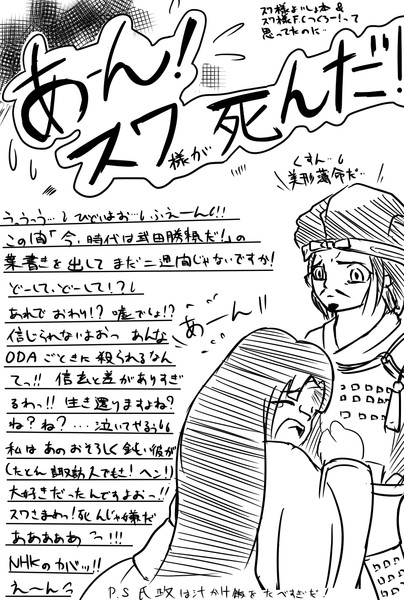 スワ様よいしょ本&
スワ様F.Cつくろー!って
思ってたのに…
あーん!
スワ様が死んだ!
くすん…
美形薄命だ…
うっうっう…ひどいよお…ふえーん!!
この間「今、時代は武田勝頼だ!」の
葉書きを出してまだ二週間じゃないですか!
どーして、どーして!?
あれでおわり!?嘘でしょ!?
信じられないよおっあんな
ODAごときに殺られるなん
てっ!!信玄と差がありすぎ
るわっ!!生き還りますよね?
ね?ね?…泣いてやるっ
私はあのおそろしく鈍い彼が
(たとえ諏訪人でもさ!ヘン!)
大好きだったんですよおっ!!
スワさまぁっ!死んじゃ嫌だ
ああああああっ!!!
NHKのカバッ!!
えーんっ
あーん!!
P.S 氏政は汁かけ飯をたべすぎだ!